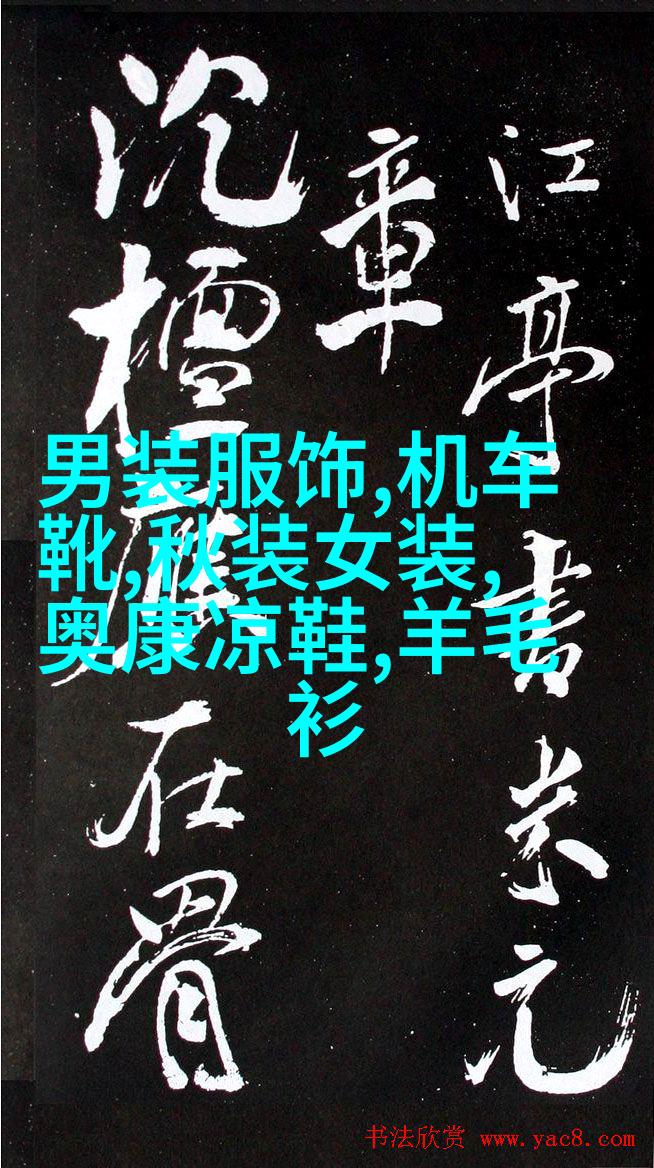 江亭書米元
章
沉檀在骨
男装服饰,机车
靴,秋装女装,
奥康凉鞋,羊毛
衫
书法欣赏 www.yac8.com